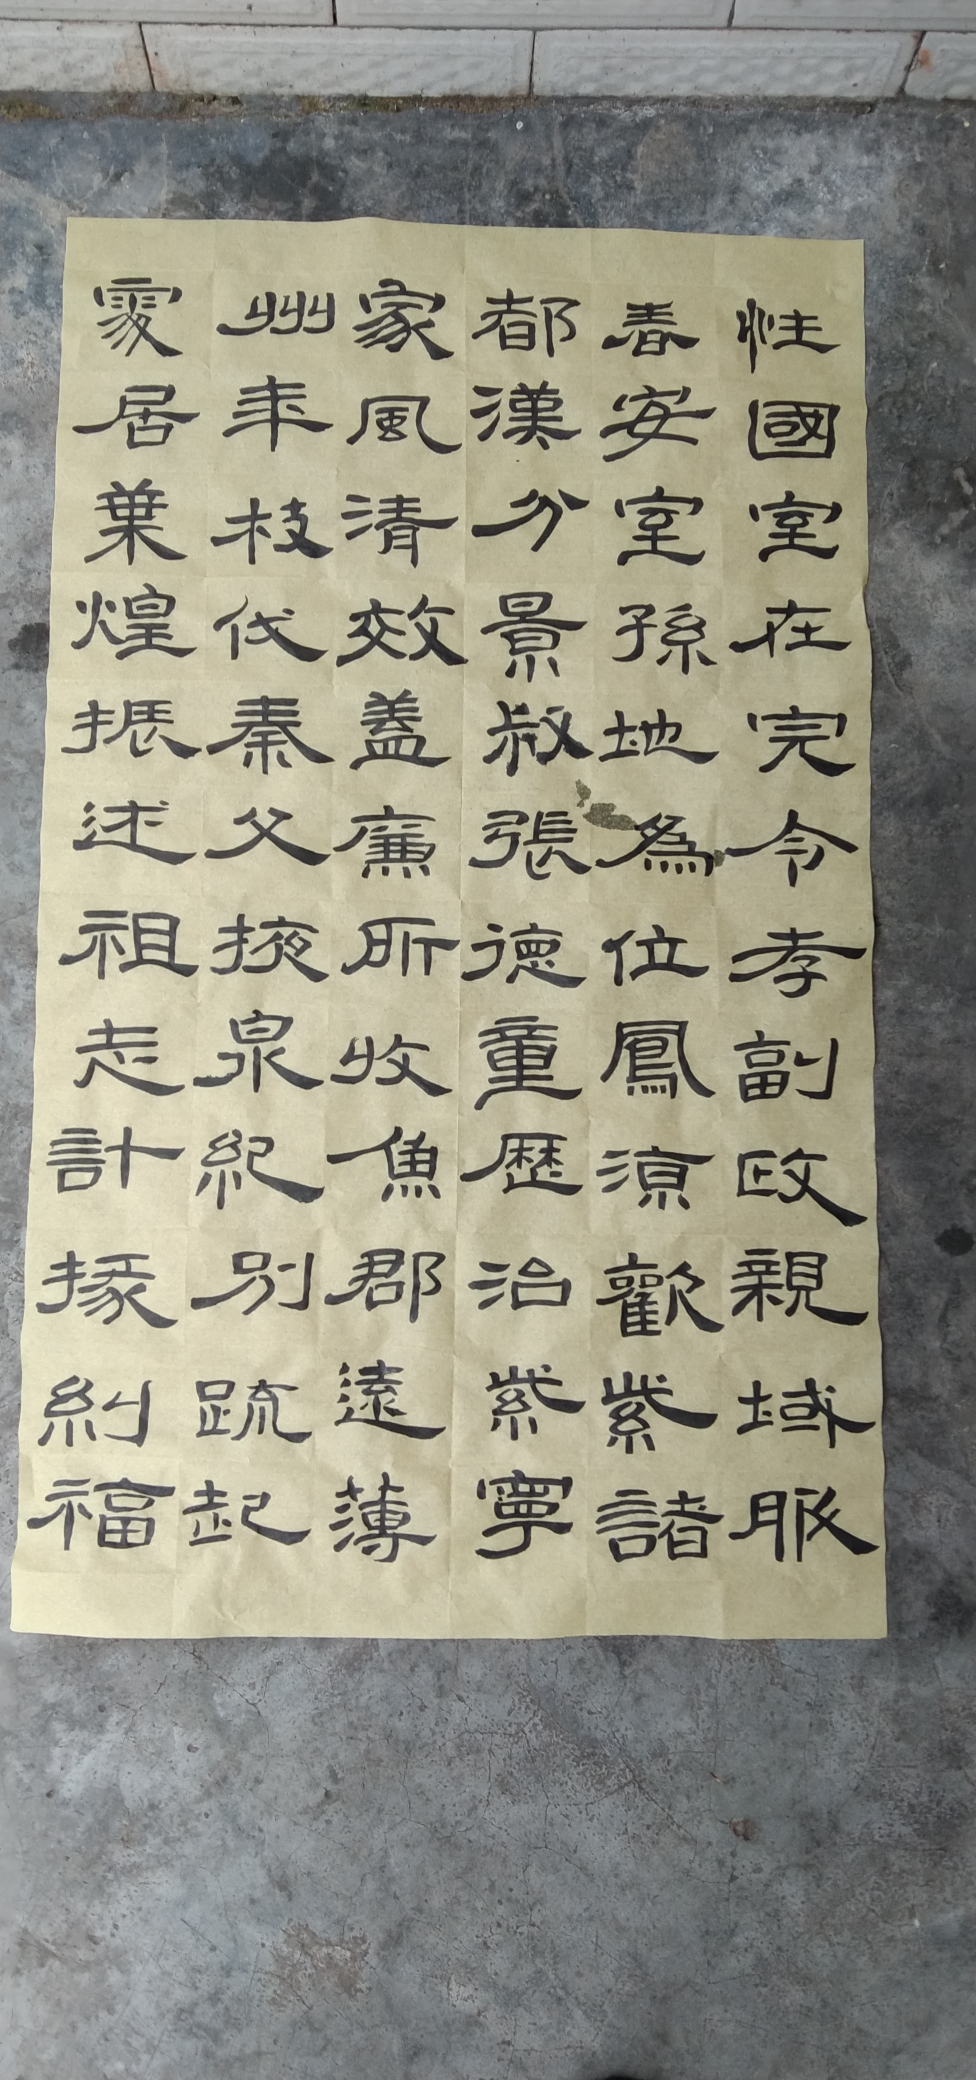 性國室在完令孝副政親域服
春安室孫地為位鳳涼歡紫諸
都漢分景叔張德童歷治紫寧
家風清效蓋廉所收魚郡遠薄
州年枝代秦父掖泉紀別疏起
居葉煌振述祖志計掾糾福